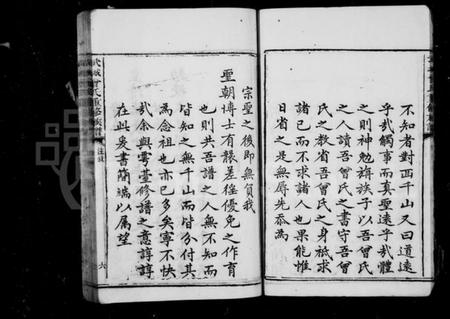 不知者對面千山又曰道遠
乎哉觸事而真聖遠乎哉體
之則神勉旃族子以吾曾氏
之人讀吾曾氏之書守吾曾
氏之教省吾曾氏之身祗求
諸己而不求諸人也果能惟
日省之是無辱先忝為
宗聖之後即無負我
聖朝博士有賴差徭優免之作育
也則共吾譜之人無不知而
皆知之無千山而皆分付其
為念祖也亦已多矣寧不快
哉余與雩臺修譜之意諄諄
在此爰書簡端以屬望
武城曾氏重修族譜
六